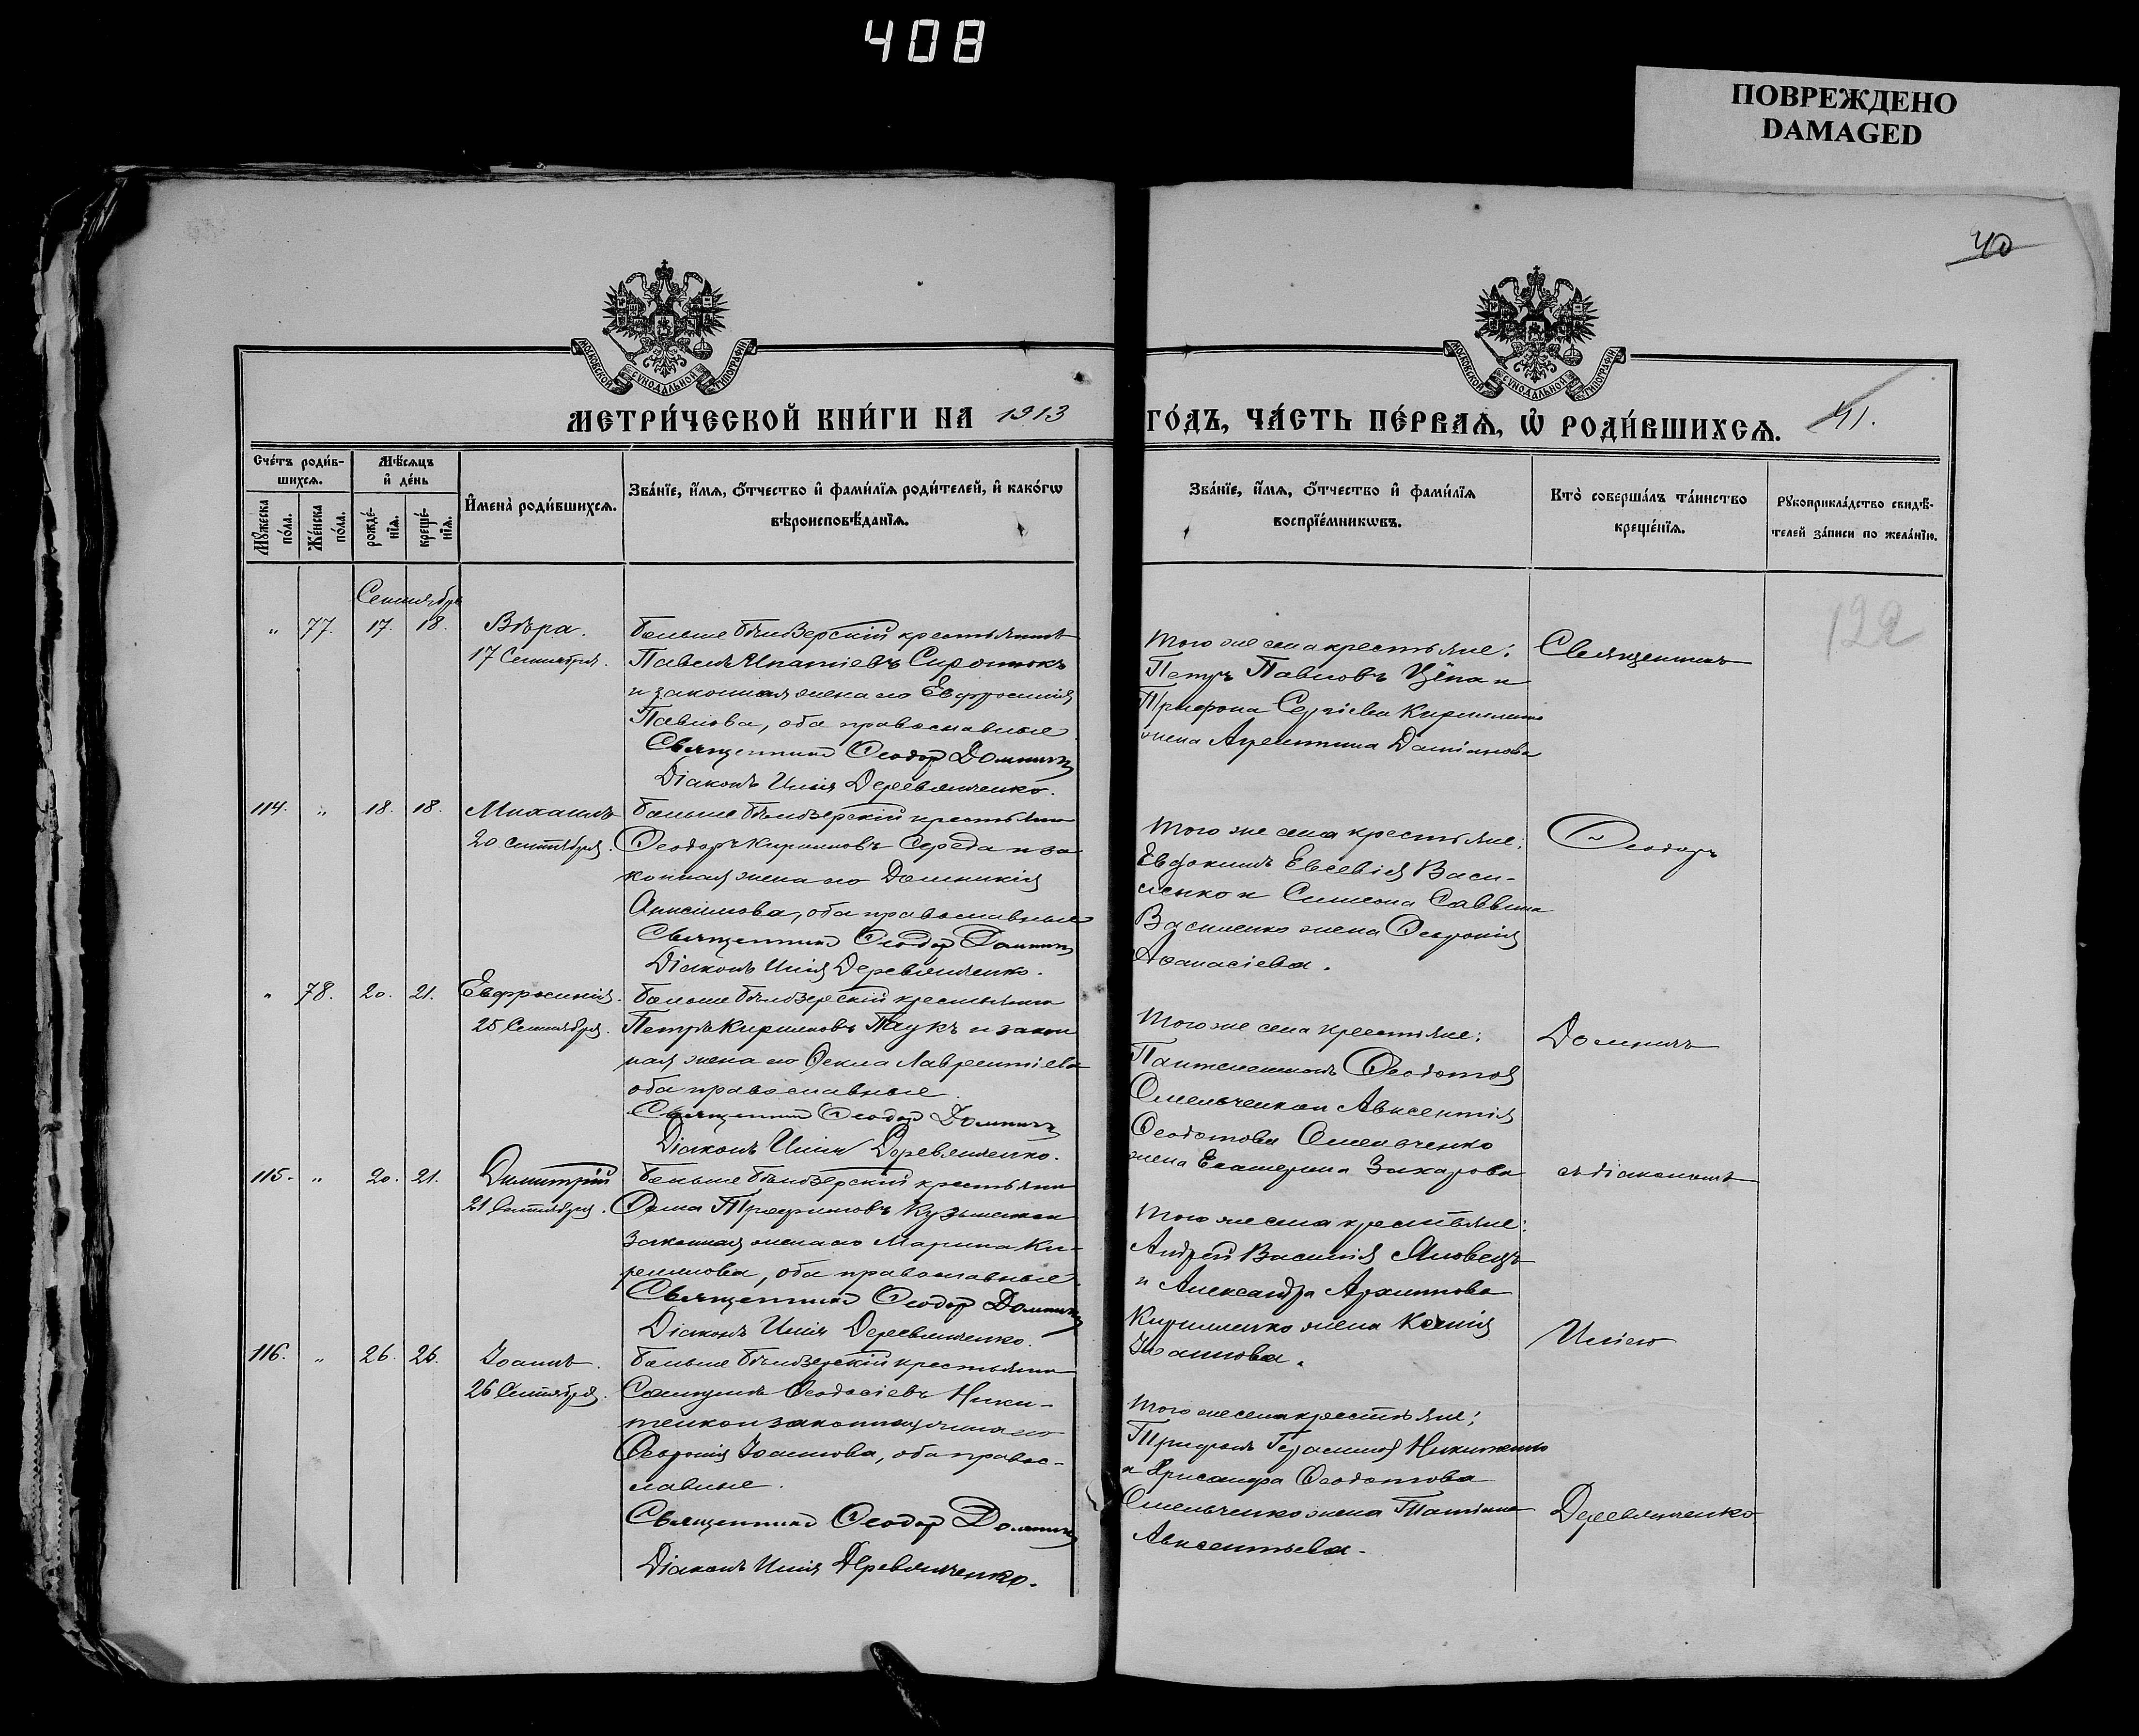 408
ПОВРЕЖДЕНО
DAMAGED
40
МОСКОВСКОЙ СѴНОДАЛЬНОЙ ТИПОГРАФІИ
МОСКОВСКОЙ СѴНОДАЛЬНОЙ ТИПОГРАФІИ
МЕТРИ́ЧЕСКОЙ КНИ́ГИ НА 1913 ГО́ДЪ, ЧА́СТЬ ПЕ́РВАѦ, Ѡ РОДИ́ВШИХСѦ. 41.
Сче́тъ роди́в-
шихсѧ.
Мꙋжеска по́ла.
Же́нска по́ла.
Мѣ́сѧцъ
и҆ де́нь
рожде́-
нїѧ.
креще́-
нїѧ.
И҆мена̀ роди́вшихсѧ.
Зва́нїе, и҆́мѧ, ѻ҆́тчество и҆ фами́лїѧ роди́телей, и҆ како́гѡ
вѣроисповѣ́данїѧ.
Зва́нїе, и҆́мѧ, ѻ҆́тчество и҆ фами́лїѧ
воспрїе́мникѡвъ.
Кто̀ соверша́лъ та́инство
креще́нїѧ.
Рꙋкоприкла́дство свидѣ́-
телей за́писи по жела́нїю.
Сентябрь
" 77. 17. 18. Вѣра.
17 Сентября.
больше бѣлозерскій крестьянинъ
Павелъ Ипатіевъ Сиротюкъ
и законная жена его Евфросинія
Павлова, оба православные
Священникъ Ѳеодоръ
Діаконъ Илія Деревянченко.
Того же села крестьяне:
Петръ Павловъ Цѣпа и
Трифона Сергіева Кириленко
жена Даміанова
Священникъ
122
114. " 18. 18. Михаилъ
20 Сентября.
больше бѣлозерскій крестьянинъ
Ѳеодоръ Кирилловъ Середа и за
конная жена его Домникія
Анисимова, оба православные
Священникъ Ѳеодоръ
Діаконъ Илія Деревянченко.
Того же села крестьяне:
Евдокимъ Евсевія Васи-
ленко и Симеона Саввина
Василенко жена Ѳевронія
Аѳанасіева.
Ѳеодоръ
" 78. 20. 21. Евфросинія.
25 Сентября.
больше бѣлозерскій крестьянинъ
Петръ Кирилловъ Паукъ и закон
ная жена его Ѳекла Лаврентіева
оба православные.
Священникъ Ѳеодоръ
Діаконъ Илія Деревянченко.
Того же села крестьяне:
Пантелеимонъ Ѳеодотов
Омельченко и Авксентія
Ѳеодотова Омельченко
жена Екатерина Захарова
съ діакономъ
115. " 20. 21. Димитрій
21 Сентября.
больше бѣлозерскій крестьянинъ
Ѳома Трофимовъ Кузьменко и
законная жена его Марина Ки-
риллова, оба православные
Священникъ Ѳеодоръ
Діаконъ Илія Деревянченко.
Того же села крестьяне:
Андрей Василія Яловецъ
и Александра Архипова
Кириленко жена Ксенія
Іоаннова.
Иліею
116. " 26. 26. Іоаннъ.
26 Сентября.
больше бѣлозерскій крестьянинъ
Самуилъ Ѳеодосіевъ Ники-
тенко и законная жена его
Ѳевронія Іоаннова, оба правос-
лавные.
Священникъ Ѳеодоръ
Діаконъ Илія Деревянченко.
Того же села крестьяне:
Трифонъ Герасимов Никитенко
и Хрисанфа Ѳеодотова
Омельченко жена Татіана
Авксентьева.
Деревянченко.